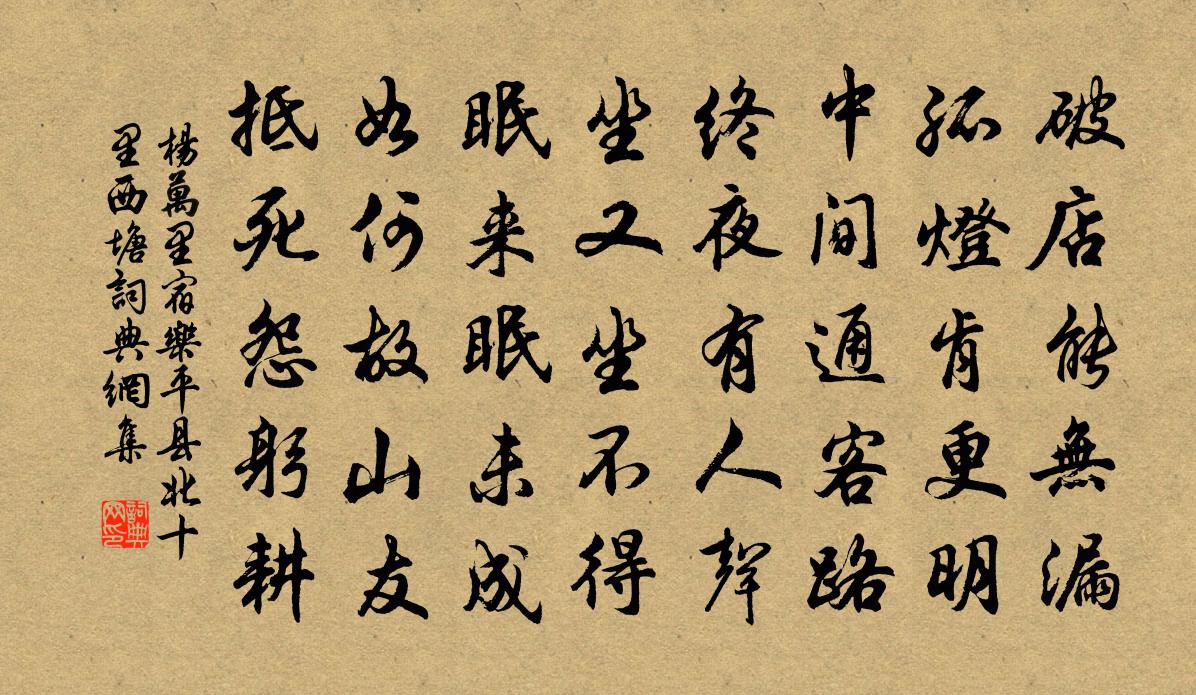 破店能無漏
孤燈肯更明
中間通客路
終夜有人聲
坐又坐不得
眠来眠未成
如何故山友
抵死怨躬耕
楊萬里宿樂平县北十
里西塘詞典網集
詞典
网印